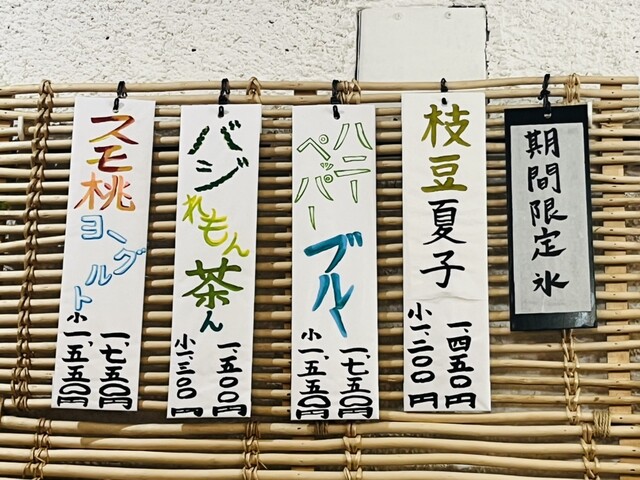 期間限定氷
枝豆
夏子
一、四五〇円
小一、二〇〇円
ハニー
ペッパー
ブルー
一、七五〇円
小一、五五〇円
バジ
れもん
茶ん
一、五〇〇円
小一、三〇〇円
スモ桃
ヨーグルト
一、七五〇円
小一、五五〇円